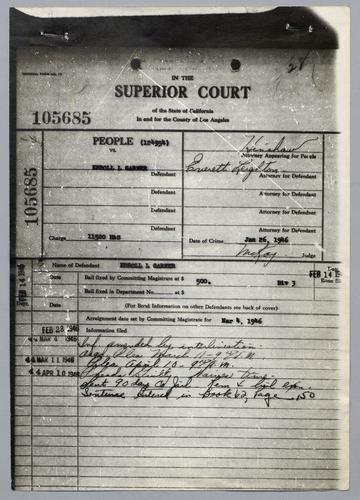 28
IN THE
SUPERIOR COURT
of the State of California
In and for the County of Los Angeles
105685
105685
PEOPLE (124954)
vs.
ERROLL L GARNER
Defendant
Defendant
Defendant
Defendant
Defendant
Charge 11500 H&S
Kinshaw
Attorney Appearing for People
Everett Leighton
Attorney for Defendant
Attorney for Defendant
Attorney for Defendant
Attorney for Defendant
Attorney for Defendant
Date of Crime Jan 26, 1946
McCoy Judge
Name of Defendant ERROLL L GARNER
FEB 14 1946
Date
Bail fixed by Committing Magistrate at $ 500. Div 3
FEB 14
Date
Bail fixed in Department No. at $
(For Bond Information on other Defendants see back of cover)
Arraignment date set by Committing Magistrate for Mar 4, 1946
FEB 28 1946 Information filed
44 MAR 4 1946 Inf. amended by interlineation.
44 MAR 11 1946
44 APR 10 1946 Pleads Guilty Waives time.
Sent. 90 days Co Jail
Sentence Entered in Book 62, Page 150